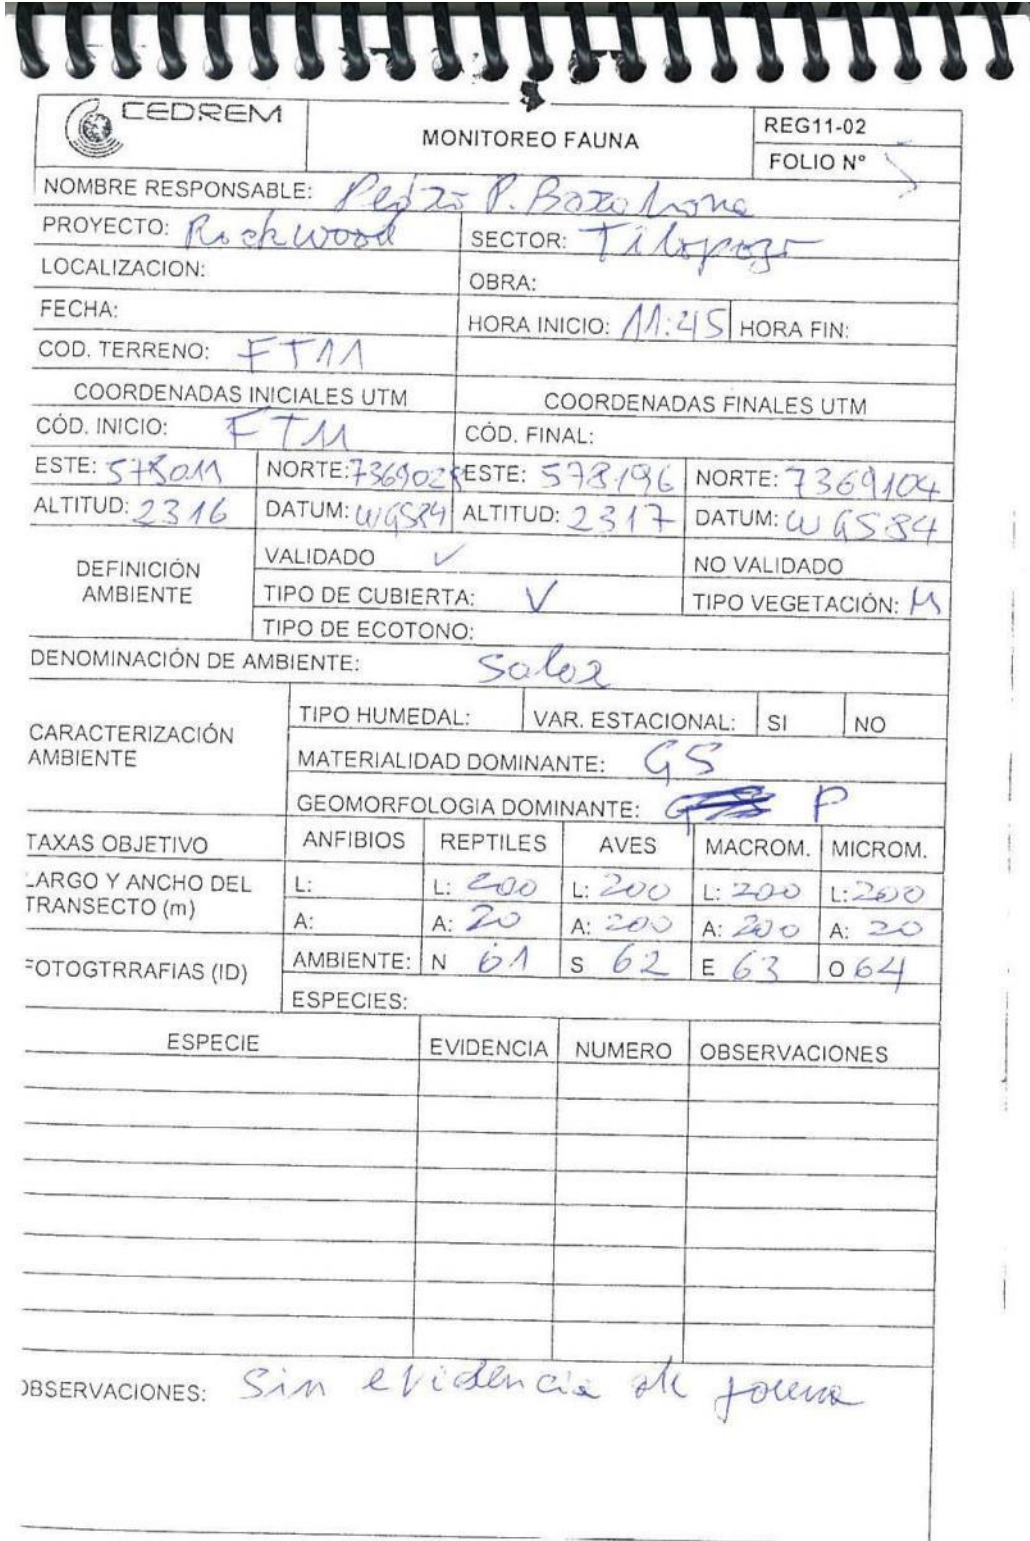 CEDREM
MONITOREO FAUNA
REG11-02
FOLIO Nº
NOMBRE RESPONSABLE: Pedro P. Barahona
PROYECTO: Rockwood SECTOR: Tilopozo
LOCALIZACION: OBRA:
FECHA: HORA INICIO: 11:45 HORA FIN:
COD. TERRENO: FT11
COORDENADAS INICIALES UTM COORDENADAS FINALES UTM
CÓD. INICIO: FT11 CÓD. FINAL:
ESTE: 578011 NORTE: 7369028 ESTE: 578196 NORTE: 7369104
ALTITUD: 2316 DATUM: WGS84 ALTITUD: 2317 DATUM: WGS84
DEFINICIÓN AMBIENTE
VALIDADO ✓ NO VALIDADO
TIPO DE CUBIERTA: V TIPO VEGETACIÓN: M
TIPO DE ECOTONO:
DENOMINACIÓN DE AMBIENTE: Salar
CARACTERIZACIÓN AMBIENTE
TIPO HUMEDAL: VAR. ESTACIONAL: SI NO
MATERIALIDAD DOMINANTE: GS
GEOMORFOLOGIA DOMINANTE: P
TAXAS OBJETIVO ANFIBIOS REPTILES AVES MACROM. MICROM.
LARGO Y ANCHO DEL TRANSECTO (m)
L: L: 200 L: 200 L: 200 L: 200
A: A: 20 A: 200 A: 200 A: 20
FOTOGTRRAFIAS (ID)
AMBIENTE: N 61 S 62 E 63 O 64
ESPECIES:
ESPECIE EVIDENCIA NUMERO OBSERVACIONES
OBSERVACIONES: Sin evidencia de fauna